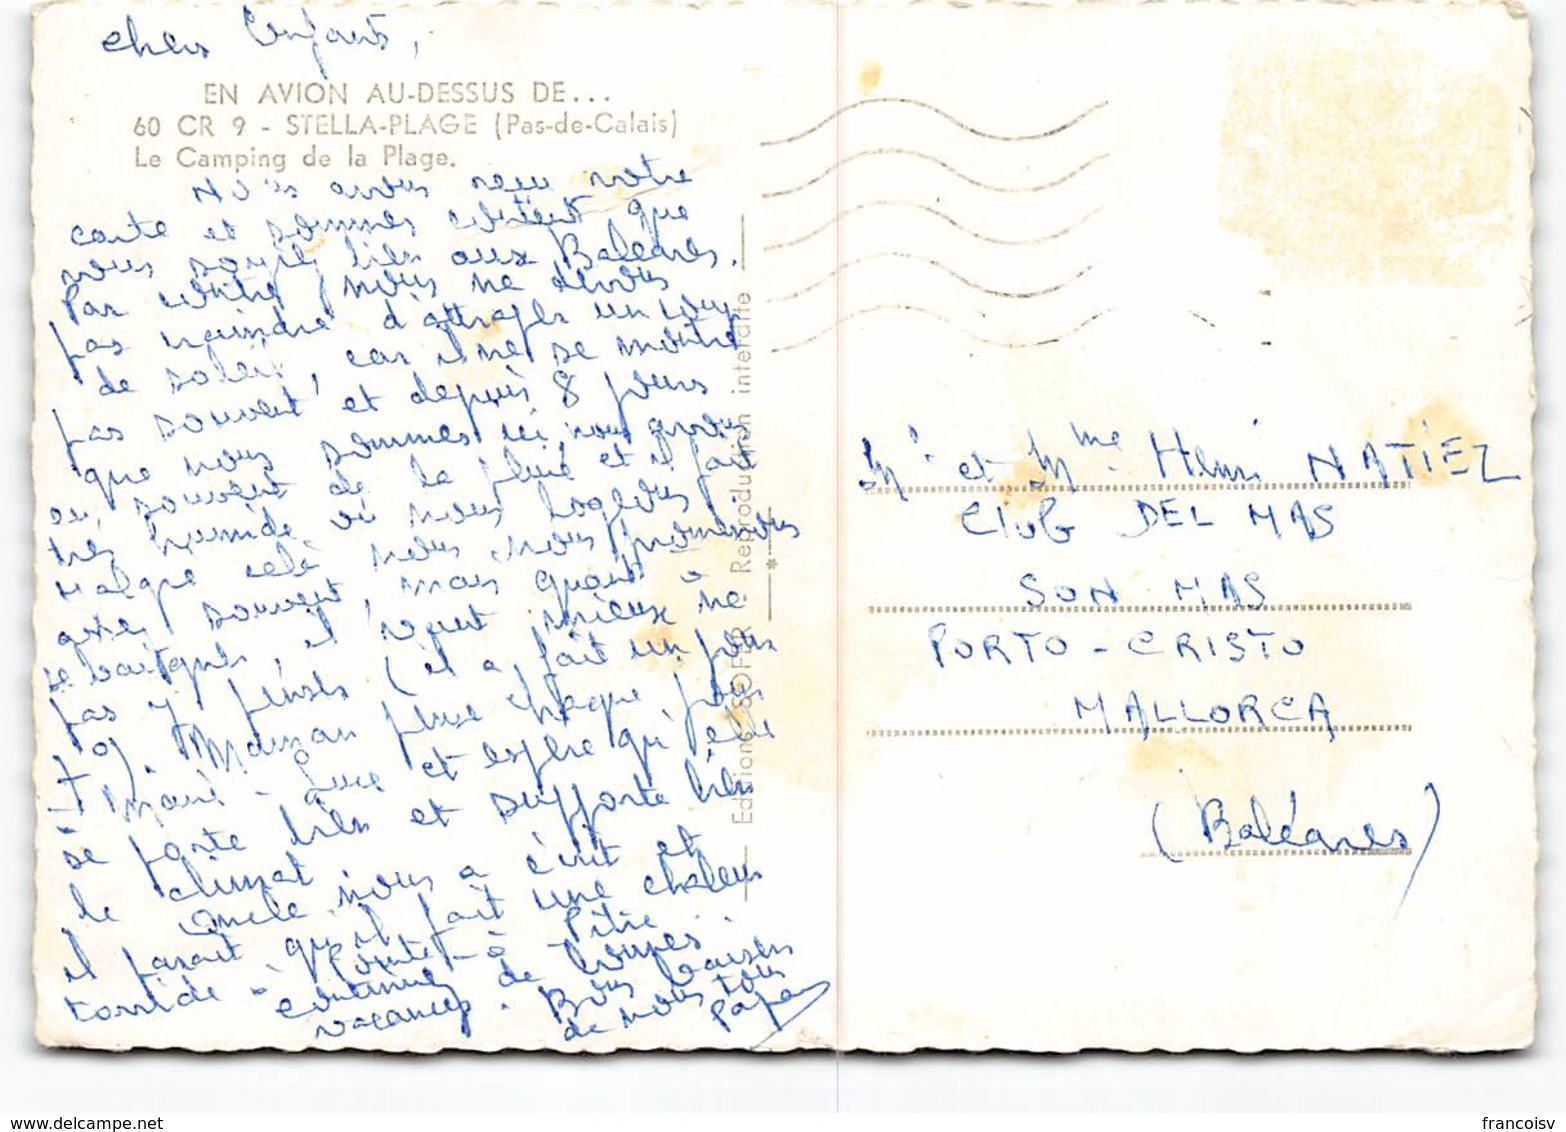 chers Enfants,
EN AVION AU-DESSUS DE...
60 CR 9 - STELLA-PLAGE (Pas-de-Calais)
Le Camping de la Plage.
Nous avons reçu votre
carte et sommes content que
vous soyez bien aux Baléares.
Par contre, nous ne devons
pas craindre d'attraper un coup
de soleil, car il ne se montre
pas souvent et depuis 8 jours
que nous sommes ici nous avons
eu souvent de la pluie et il fait
très humide où nous logeons
Malgré celà nous nous promenons
assez souvent, mais quant à
se baigner, il vaut mieux ne
pas y penser (il a fait un jour
Maman pense chaque jour
à Marie-Luce et espère qu'elle
se porte bien et supporte bien
le climat
Oncle nous a écrit et
il parait qu'il fait une chaleur
torride à Pointe-à-Pitre.
continuez de bonnes
vacances. Bons baisers
de nous tous
Papa
Editions SOFER - Reproduction interdite
*
Mr et Mme Henri NATIEZ
Club DEL MAS
SON MAS
PORTO-CRISTO
MALLORCA
(Baléares)
francoisv